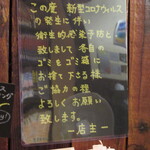 この度 新型コロナウィルス
の発生に伴い
衛生的感染予防と
致しまして 各自の
ゴミをゴミ箱に
お捨て下さる様
ご協力の程
よろしくお願い
致します。
―店主―